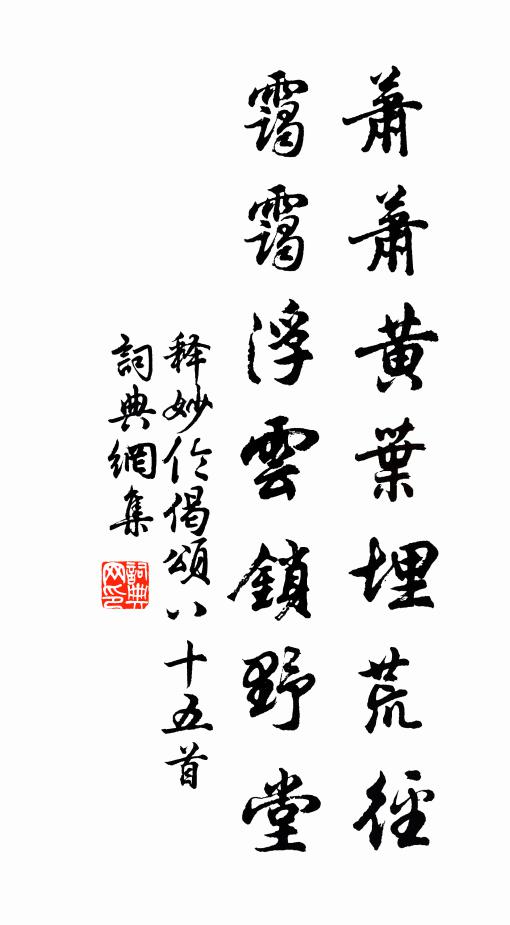 蕭蕭黃葉埋荒徑
靄靄浮雲鎖野堂
释妙伦偈頌八十五首
詞典網集
詞典网印